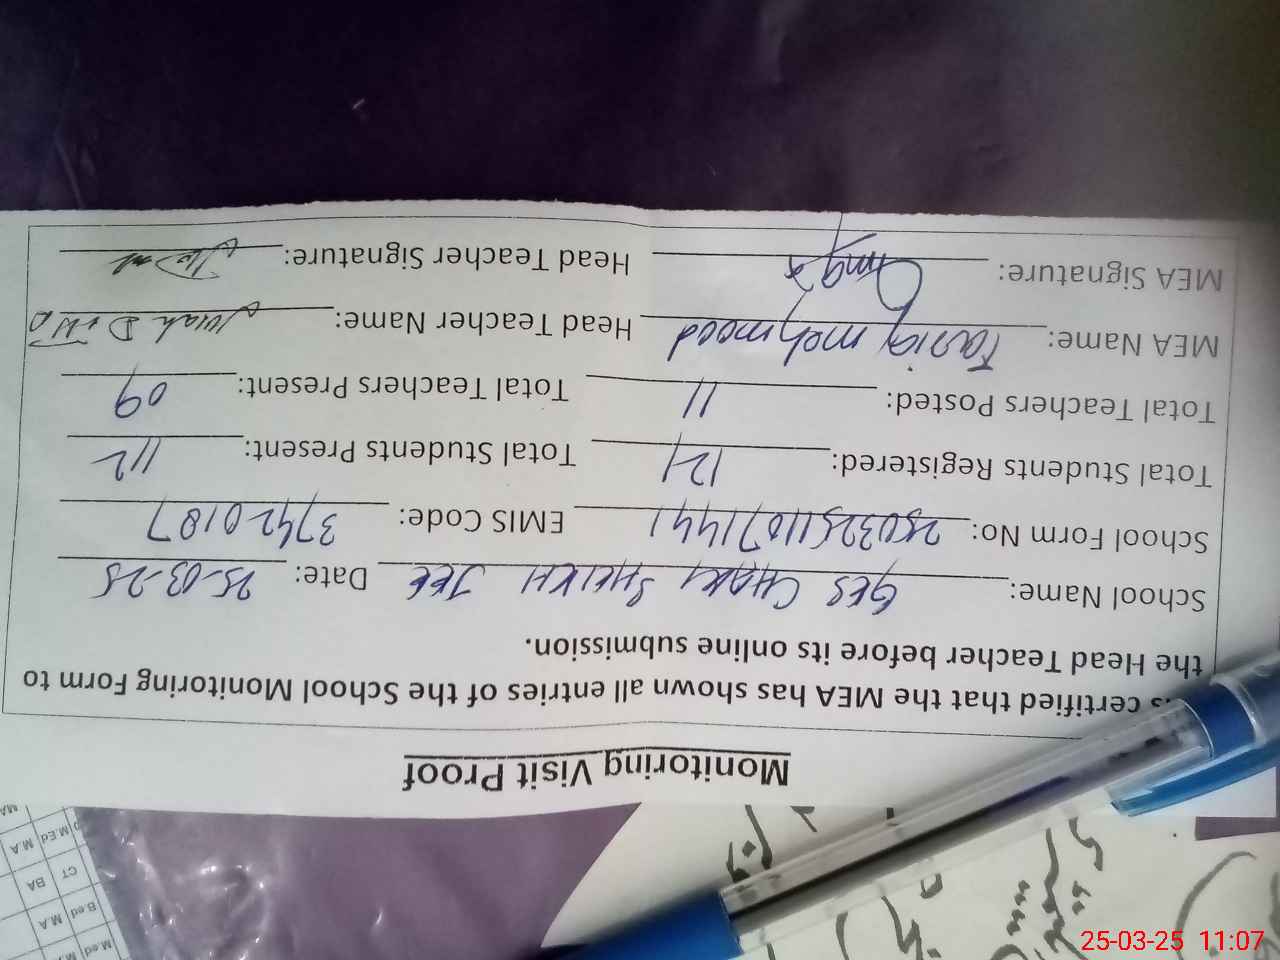 Monitoring Visit Proof
certified that the MEA has shown all entries of the School Monitoring Form to
the Head Teacher before its online submission.
School Name: GES CHAK SHEIKH JEE Date: 25-03-25
School Form No: 25032511071441 EMIS Code: 37420187
Total Students Registered: 121 Total Students Present: 112
Total Teachers Posted: 11 Total Teachers Present: 09
MEA Name: Tariq mehmood Head Teacher Name: Ditta
MEA Signature: Head Teacher Signature:
M.Ed M.A
CT BA
B.ed M.A
M.ed
25-03-25 11:07